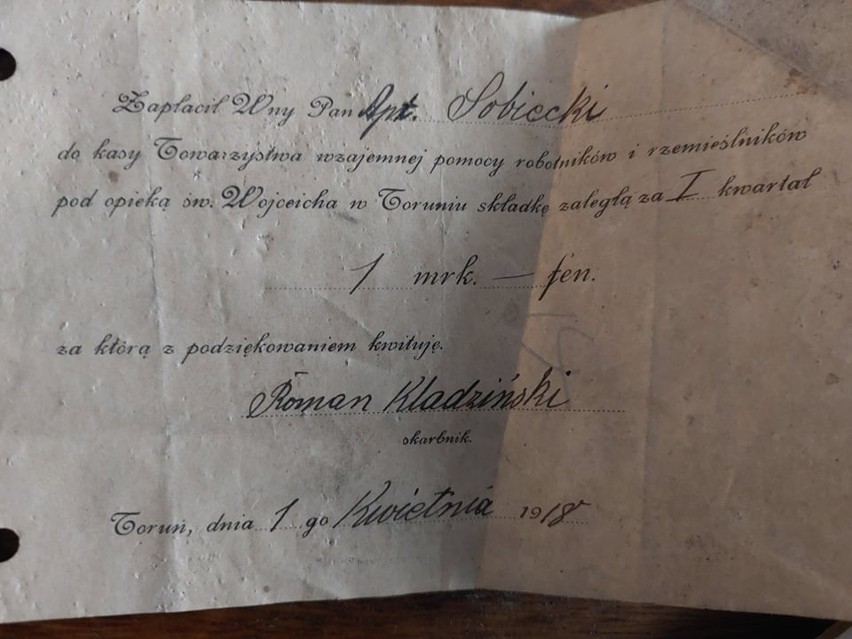 Zapłacił Wny Pan Apt. Sobiecki
do kasy Towarzystwa wzajemnej pomocy robotników i rzemieślników
pod opieką św. Wojceicha w Toruniu składkę zaległą za I kwartał
1 mrk. — fen.
za którą z podziękowaniem kwituję.
Roman Kladziński
skarbnik.
Toruń, dnia 1 go Kwietnia 1918